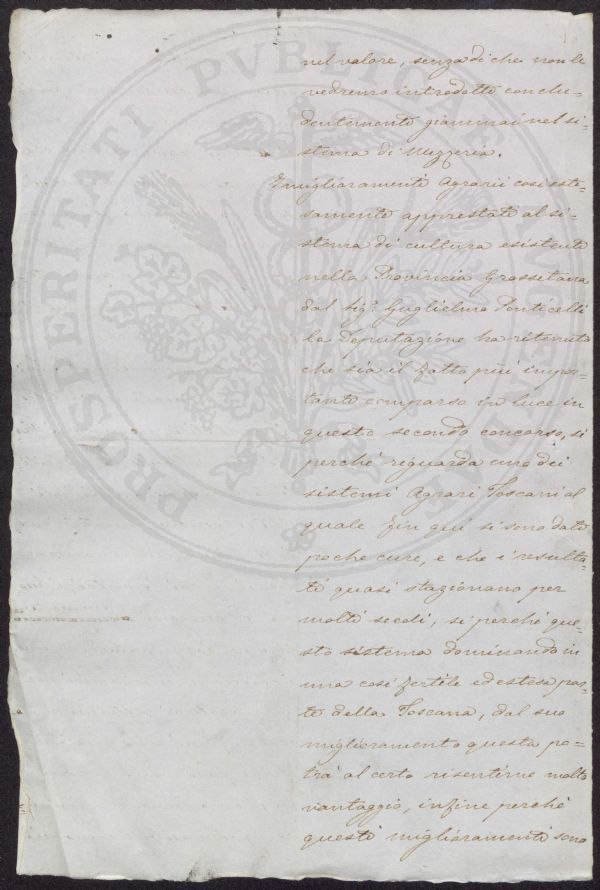 nel valore, senza di che non le
vedremo introdotte conclu=
dentemente giammai nel si=
stema di Mezzeria.
I miglioramenti Agrarii così este=
samente apprestati al si=
stema di cultura esistente
nella Provincia Grossetana
dal Sigr. Guglielmo Ponticelli
la Deputazione ha ritenuto
che sia il fatto più impor=
tante comparso in luce in
questo secondo concorso, si
perché riguarda uno dei
sistemi Agrari Toscani al
quale fin qui si sono date
poche cure, e che i resulta=
ti quasi stazionano per
molti secoli, si perché que=
sto sistema dominando in
una così fertile ed estesa par=
te della Toscana, dal suo
miglioramento questa po=
trà al certo risentirne molto
vantaggio, infine perché
questi miglioramenti sono
PROSPERITATI PVBLICAE AVGENDAE